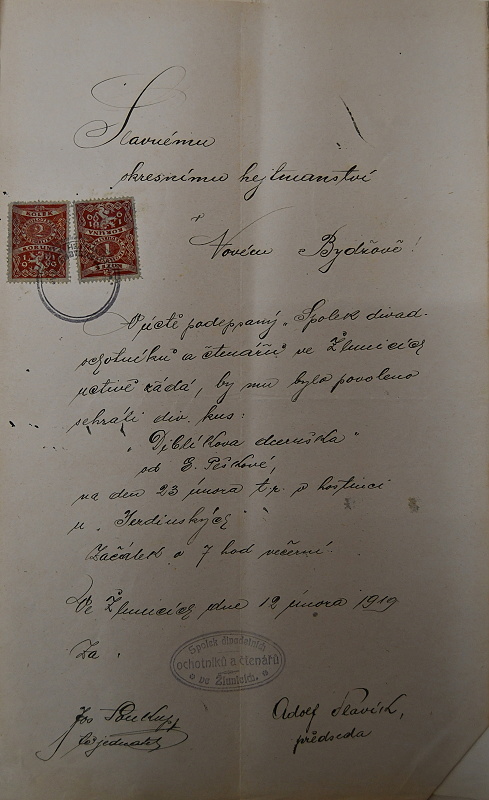 Slavnému
okresnímu hejtmanství
v
Novém Bydžově!
V úctě podepsaný „Spolek divad.
ochotníků a čtenářů ve Žlunicích
uctivě žádá, by mu bylo povoleno
sehráti div. kus:
„Diblíkova dceruška"
od E. Peškové,
na den 23 února t.r. v hostinci
u „Ferdinských"
Začátek o 7 hod večerní.
Ve Žlunicích dne 12 února 1919
Za
Spolek divadelních
ochotníků a čtenářů
ve Žlunicích.
Jos Soukup,
jednatel
Adolf
předseda
KOLEK
2
KORUNY
1
KORUNA
KOLEK